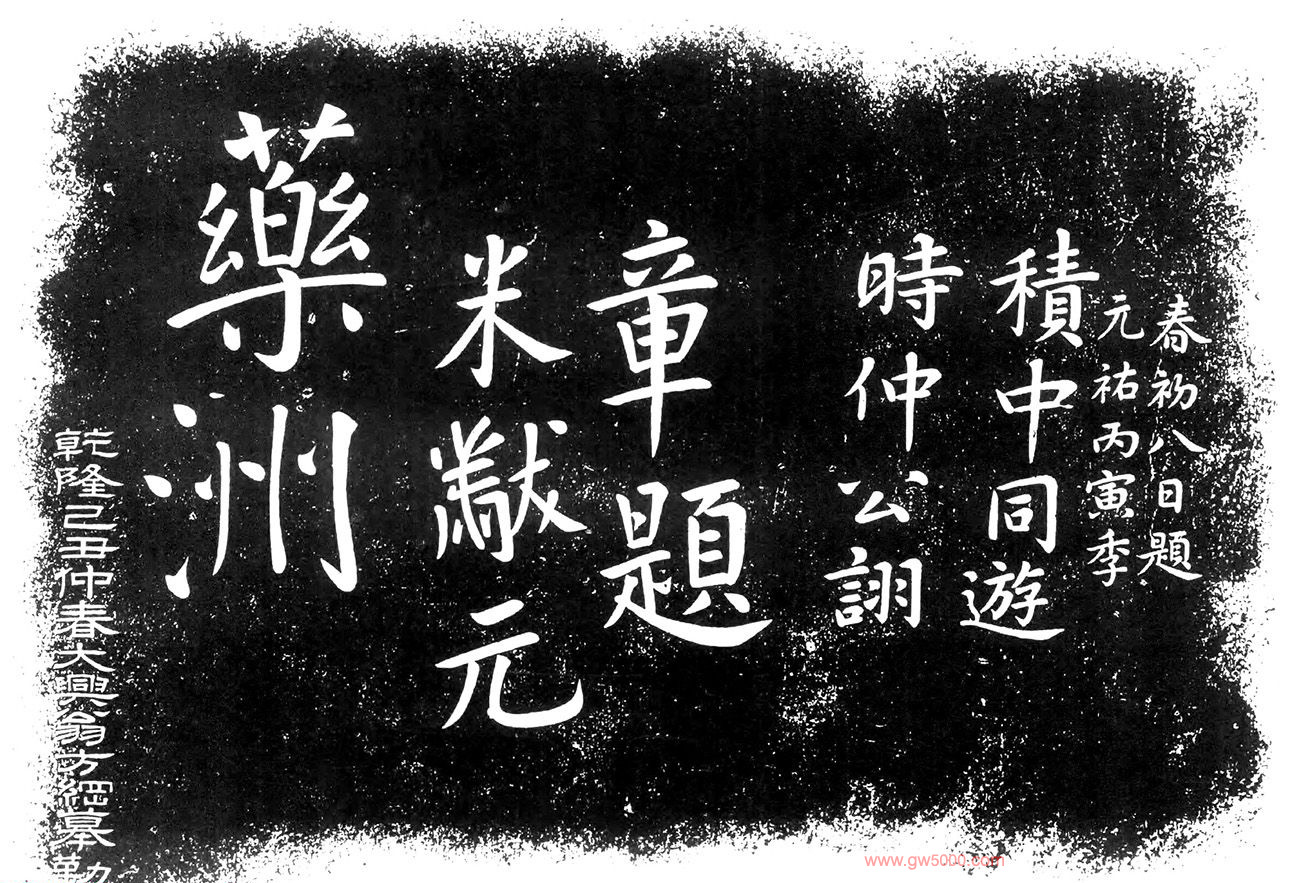 藥洲
米黻元
章題
時仲公詡
積中同遊
元祐丙寅季
春初八日題
乾隆己丑仲春大興翁方綱摹勒
www.gw5000.com